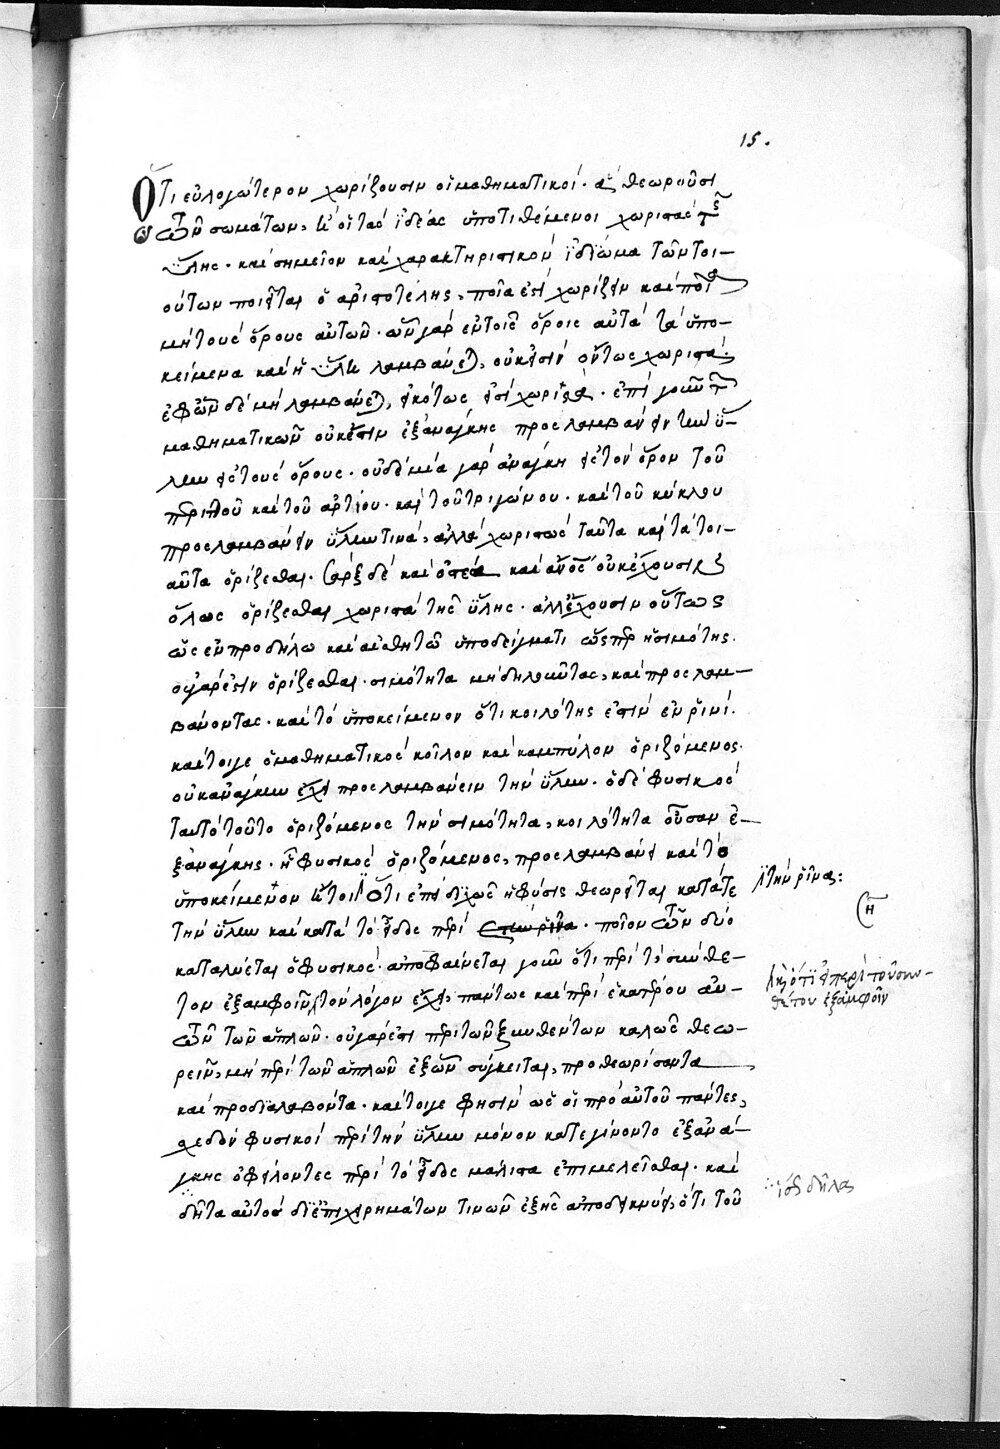 15.
Ὅτι εὐλογώτερον χωρίζουσιν οἱ μαθηματικοί· ἃ θεωροῦσι
τῶν σωμάτων, ἢ οἱ τὰς ἰδέας ὑποτιθέμενοι χωριστὰς τῆς
ὕλης· καὶ σημεῖον καὶ χαρακτηριστικὸν ἰδίωμα τῶν τοι-
ούτων ποιεῖται ὁ ἀριστοτέλης, ποῖα ἐστὶ χωρίζειν καὶ ποῖα
μὴ τοὺς ὅρους αὐτῶν· ὧν γὰρ ἐν τοῖς ὅροις αὐτὰ τὰ ὑπο-
κείμενα καὶ ἡ ὕλη λαμβάνεται, οὐκ εἰσὶν ὄντως χωριστά·
ἐφ' ὧν δὲ μὴ λαμβάνεται, εἰκότως εἰσὶ χωριστά· ἐπὶ γοῦν τῶν
μαθηματικῶν οὐκ ἔστιν ἐξ ἀνάγκης προσλαμβάνειν τὴν ὕ-
λην εἰς τοὺς ὅρους· οὐδεμία γὰρ ἀνάγκη εἰς τὸν ὅρον τοῦ
περιττοῦ καὶ τοῦ ἀρτίου· καὶ τοῦ τριγώνου· καὶ τοῦ κύκλου
προσλαμβάνειν ὕλην τινά, ἀλλὰ χωριστῶς ταῦτα καὶ τὰ τοι-
αῦτα ὁρίζεσθαι· σὰρξ δὲ καὶ ὀστέα καὶ ἄνθρωπος οὐκ ἔχουσιν
ὅλως ὁρίζεσθαι χωριστὰ τῆς ὕλης· ἀλλ' ἔχουσιν οὕτως
ὡς ἐν προδήλῳ καὶ αἰσθητῷ ὑποδείγματι ὥσπερ ἡ σιμότης·
οὐ γὰρ ἔστιν ὁρίζεσθαι· σιμότητα μὴ δηλοῦντας, καὶ προσλαμ-
βάνοντας· καὶ τὸ ὑποκείμενον ὅτι κοιλότης ἐστὶν ἐν ῥινί·
καίτοιγε ὁ μαθηματικὸς κοῖλον καὶ καμπύλον ὁριζόμενος
οὐκ ἀνάγκην ἔχει προσλαμβάνειν τὴν ὕλην· ὁ δὲ φυσικὸς
ταυτὸ τοῦτο ὁριζόμενος τὴν σιμότητα, κοιλότητα οὖσαν ἐ-
ξ ἀνάγκης· ἢ φυσικὸς ὁριζόμενος, προσλαμβάνει καὶ τὸ
ὑποκείμενον ἤτοι ὅτι ἐπεὶ διχῶς ἡ φύσις θεωρεῖται κατά τε
τὴν ὕλην καὶ κατὰ τὸ εἶδος περὶ · ποῖον τῶν δύο
καταλύεται ὁ φυσικός· ἀποφαίνεται γοῦν ὅτι περὶ τὸ σύνθε-
τον ἐξ ἀμφοῖν τὸν λόγον ἔχει, πάντως καὶ περὶ ἑκατέρου αὐ-
τῶν τῶν ἁπλῶν· οὐ γὰρ ἔστι περὶ τῶν ξυνθέντων καλῶς θεω-
ρεῖν, μὴ περὶ τῶν ἁπλῶν ἐξ ὧν σύγκειται, προθεωρίσαντα
καὶ προδιαλαβόντα· καίτοιγε φησὶν ὡς οἱ πρὸ αὐτοῦ πάντες,
σχεδὸν φυσικοὶ περὶ τὴν ὕλην μόνον κατεγίνοντο ἐξ ἀνά-
γκης ὀφείλοντες περὶ τὸ εἶδος μάλιστα ἐπιμελεῖσθαι· καὶ
δῆτα αὐτὸς δι' ἐπιχειρημάτων τινῶν ἑξῆς ἀποδείκνυσι, ὅτι τοῦ
τὴν ῥῖνα:
ἢ
ὅτι εἰ περὶ τοῦ συν-
θέτου ἐξ ἀμφοῖν